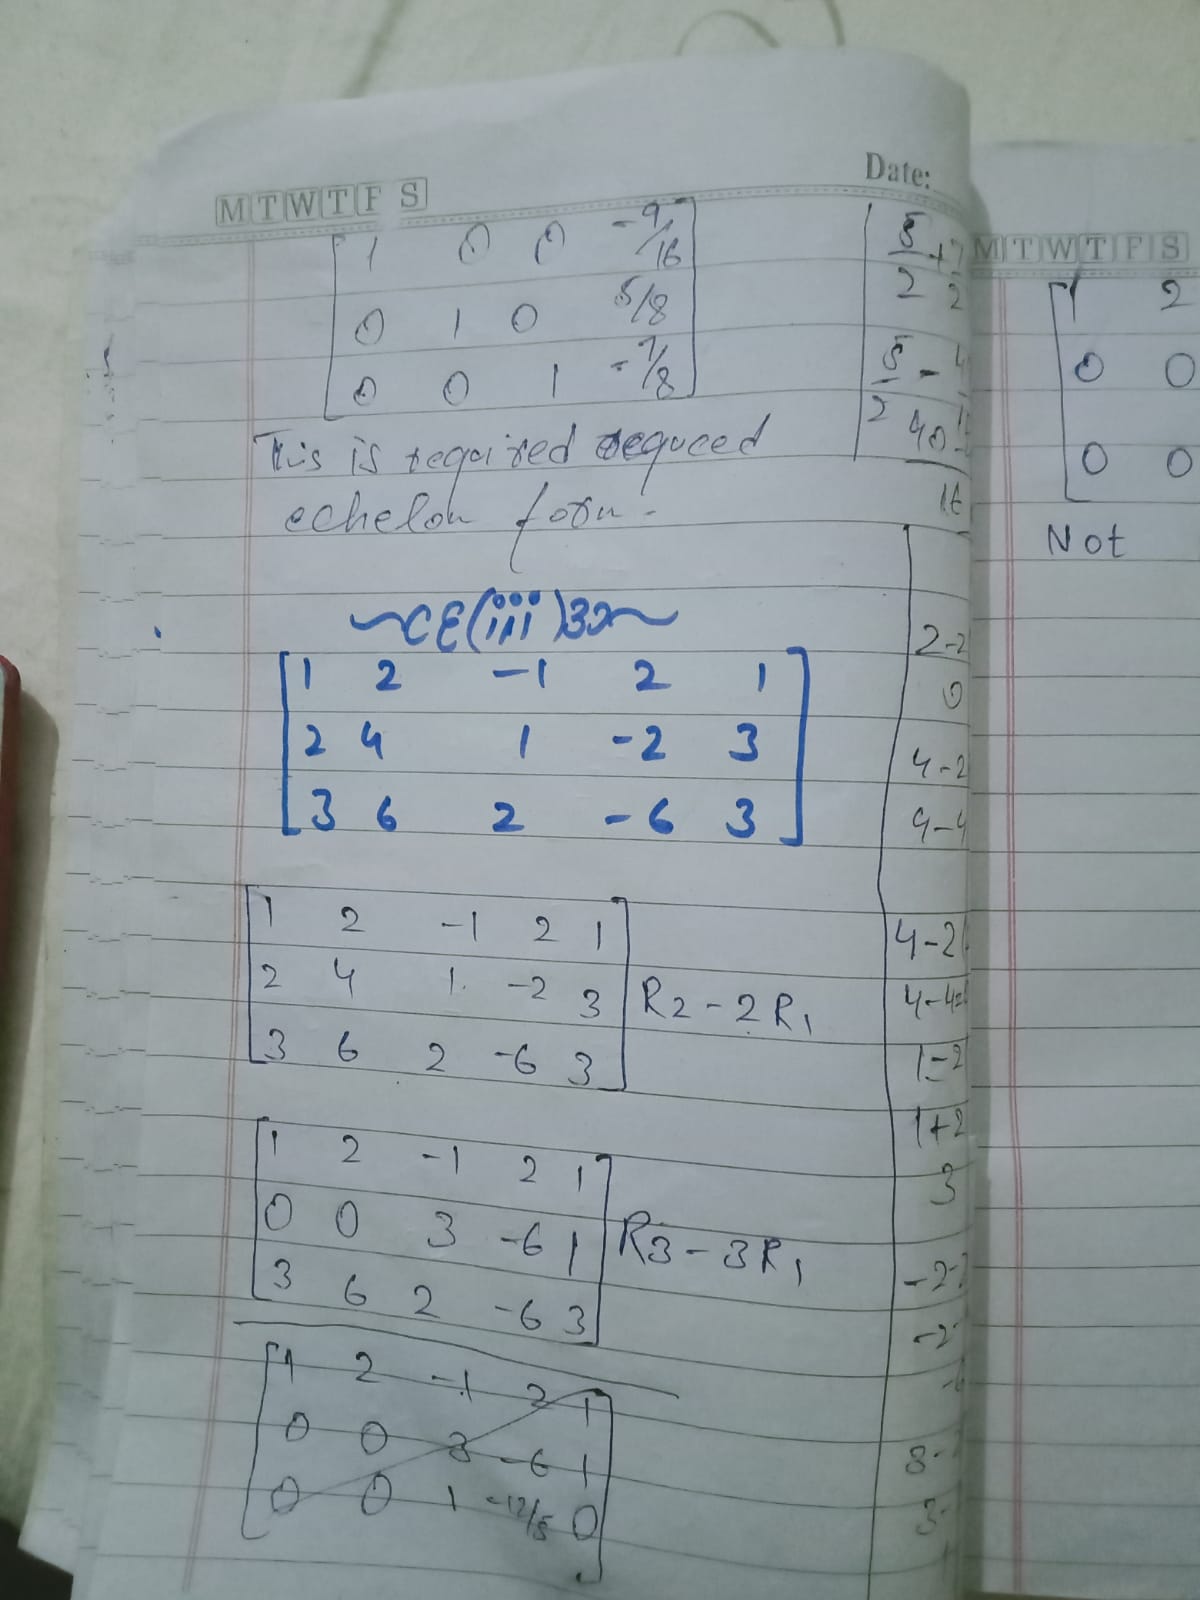 Date:
M T W T F S
1 0 0 -9/16
0 1 0 5/8
0 0 1 -7/8
This is required requced
echelon form.
CE(iii)
1 2 -1 2 1
2 4 1 -2 3
3 6 2 -6 3
1 2 -1 2 1
2 4 1 -2 3 R2-2R1
3 6 2 -6 3
1 2 -1 2 1
0 0 3 -6 1 R3-3R1
3 6 2 -6 3
1 2 -1 2 1
0 0 3 -6 1
0 0 1 -12/5 0
5/2 +
5/2 -
40
16
2-2
0
4-2
4-4
4-2(
4-4=
1-2
1+2
3
-2-2
-2-
8-
3-
M T W T F S
1 2
0 0
0 0
Not